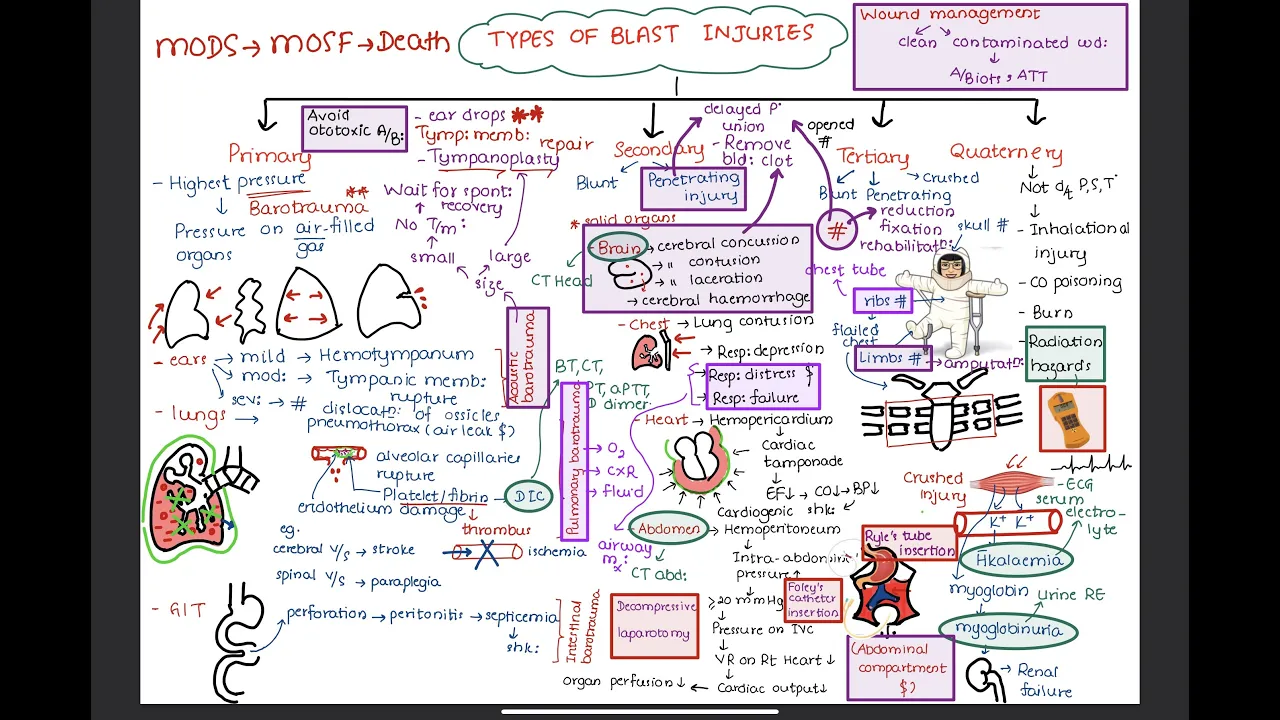 MODS → MOSF → Death
TYPES OF BLAST INJURIES
Wound management
clean contaminated wd:
A/Biots, ATT
Avoid
ototoxic A/B:
- ear drops **
Tymp: memb: repair
- Tympanoplasty
Primary
- Highest pressure
**
Barotrauma
Pressure on air-filled
gas
organs
Wait for spont:
recovery
No T/m:
small
large
size
Acoustic
barotrauma
- ears → mild → Hemotympanum
→ mod: → Tympanic memb:
rupture
→ sevs → #
dislocatn: of ossicles
- lungs → pneumothorax (air leak $)
alveolar capillaries
rupture
Platelet/fibrin → DIC
endothelium damage
thrombus
ischemia
eg.
cerebral V/S → stroke
spinal V/S → paraplegia
- GIT
perforation → peritonitis → septicemia
shk:
Intestinal
barotrauma
BT, CT,
PT, aPTT,
D dimer
Pulmonary barotrauma
→ O2
→ CXR
→ fluid
airway
mx:
Secondary
Blunt
Penetrating
injury
delayed P.
union
- Remove
bld: clot
* solid organs
- Brain → cerebral concussion
→ " contusion
→ " laceration
→ cerebral haemorrhage
CT Head
- Chest → Lung contusion
→ Resp: depression
→ Resp: distress $
→ Resp: failure
- Heart → Hemopericardium
Cardiac
tamponade
EF↓ → CO↓ → BP↓
Cardiogenic shk:
- Abdomen → Hemoperitoneum
CT abd:
Intra-abdomin
pressure↑
≥20 mmHg
Pressure on IVC
VR on Rt Heart ↓
Cardiac output↓
organ perfusion↓ ←
Decompressive
laparotomy
Foley's
catheter
insertion
Ryle's tube
insertion
(Abdominal
compartment
$)
opened
#
Tertiary
Blunt Penetrating
→ crushed
#
reduction
fixation
rehabilitatn:
skull #
chest tube
ribs #
flailed
chest
Limbs # → amputatn:
Crushed
Injury
K+ K+
- ECG
serum
electro-
lyte
Hkalaemia
myoglobin
urine RE
myoglobinuria
→ Renal
failure
Quaternery
Not d/t P,S,T
- Inhalational
injury
- CO poisoning
- Burn
- Radiation
hazards